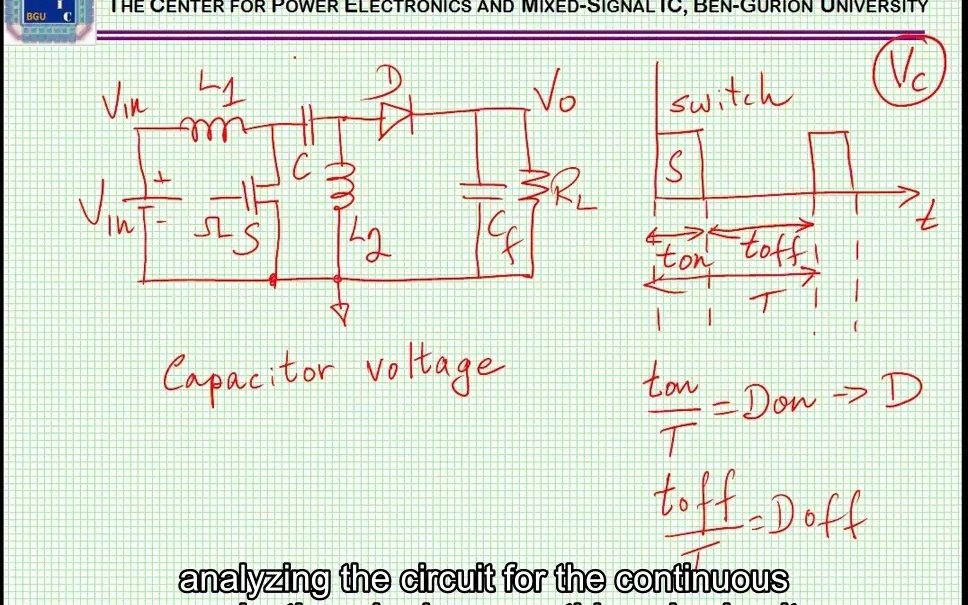 THE CENTER FOR POWER ELECTRONICS AND MIXED-SIGNAL IC, BEN-GURION UNIVERSITY
BGU
I
C
Vc
L1
D
Vin
Vo
switch
C
S
Vin
+
-
S
L2
Cf
RL
t
ton
toff
T
Capacitor voltage
ton/T = Don -> D
toff/T = Doff
analyzing the circuit for the continuous